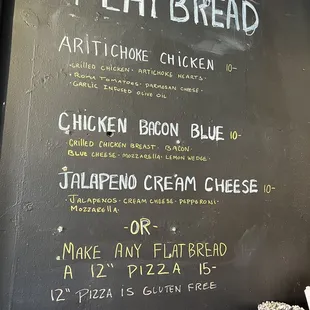 FLATBREAD
ARITICHOKE CHICKEN 10-
·GRILLED CHICKEN· ARTICHOKE HEARTS·
·ROMA TOMATOES· PARMESAN CHEESE·
·GARLIC INFUSED OLIVE OIL
CHICKEN BACON BLUE 10-
·GRILLED CHICKEN BREAST· BACON·
BLUE CHEESE· MOZZARELLA· LEMON WEDGE·
JALAPENO CREAM CHEESE 10-
·JALAPENOS· CREAM CHEESE· PEPPERONI·
MOZZARELLA·
-OR-
MAKE ANY FLATBREAD
A 12" PIZZA 15-
12" PIZZA IS GLUTEN FREE